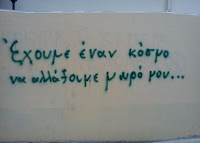 Έχουμε έναν κόσμο
να αλλάξουμε μωρό μου...